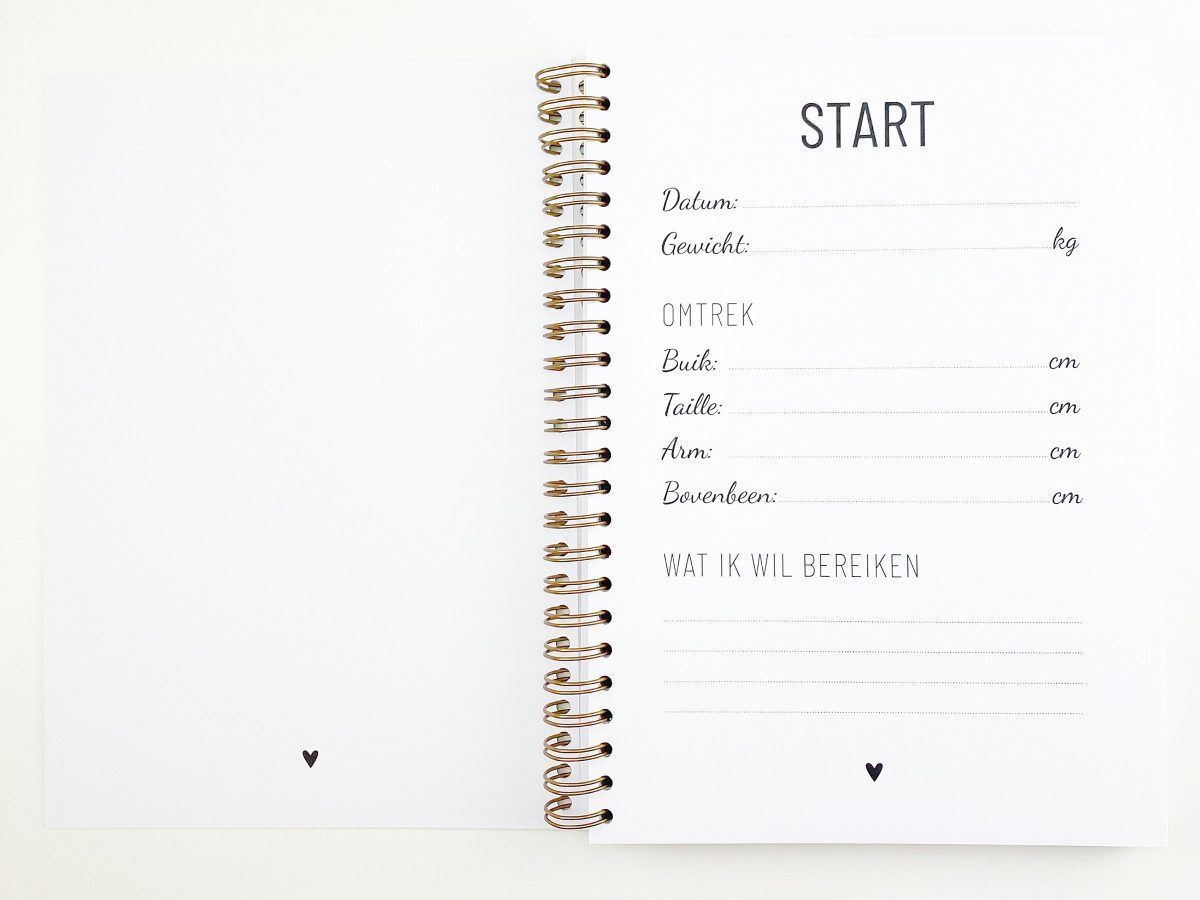 START
Datum:
Gewicht: kg
OMTREK
Buik: cm
Taille: cm
Arm: cm
Bovenbeen: cm
WAT IK WIL BEREIKEN